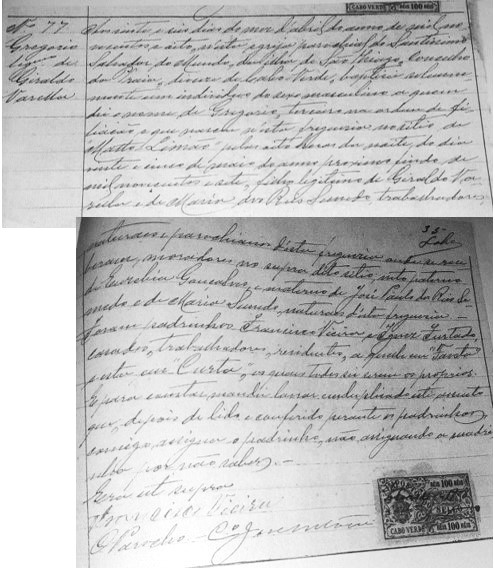 CABO VERDE REIS 100 REIS
Nº 77
Gregorio
legº de
Geraldo
Varella
Aos vinte e seis dias do mez d'abril do anno de mil no-
vecentos e oito, n'esta egreja parochial do Santissimo
Salvador do Mundo, da ilha de São Thiago, Concelho
da Praia, diocese de Cabo Verde, baptisei solemne-
mente um individuo do sexo masculino a quem
dei o nome de Gregorio, terceiro na ordem de fi-
liação e que nasceu n'esta freguezia no sitio de
"Matto Limão" pelas oito horas da noite do dia
vinte e cinco de maio do anno proximo findo de
mil novecentos e sete, filho legitimo de Geraldo Va-
rella e de Maria dos Reis Semedo, trabalhadores
naturaes e parochianos d'esta freguezia onde se rece-
beram, moradores no supra dito sitio, neto paterno
de Euzebia Gonsalves, e materno de José Paulo dos Reis Se-
medo e de Maria Semedo, naturaes d'esta freguezia. —
Foram padrinhos Francisco Vieira e Ignez Furtado,
casados, trabalhadores, residentes, a quelle em
e esta em "Curta", os quaes todos sei serem os proprios.
E para constar, mandei lavrar em duplicado este assento
que, depois de lido e conferido perante os padrinhos,
comigo assigna o padrinho, não assignando a madri-
nha por não saber. —
Era ut supra
Francisco Vieira
O Parocho —
100 REIS
SELLO
REIS 100 REIS
CABO VERDE